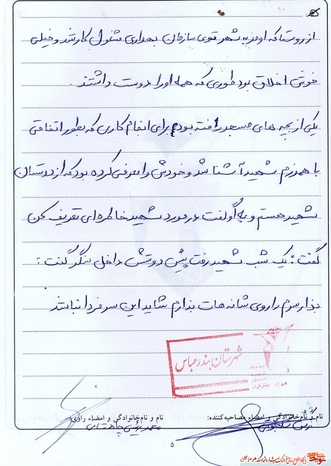 از روستا که اومد به شهر توی سازمان بهداری مشغول کار شد و خیلی
خوش اخلاق بود طوری که همه اورا دوست داشتند
یکی از بچه های مسجد رفته بودم برای انجام کاری که بطور اتفاقی
با همرزم شهید آشنا شد و خودش را معرفی کرده بود که از دوستان
شهید هستم و به او گفت در مورد شهید خاطره ای تعریف کن
گفت: یک شب شهید رفت پیش دوستش داخل سنگر گفت:
بذار سرم را روی شانه هات بذارم شاید این سر فردا نباشد
شهرستان بندرعباس
نام و نام خانوادگی و امضاء مصاحبه کننده:
نام و نام خانوادگی و امضاء راوی:
۵